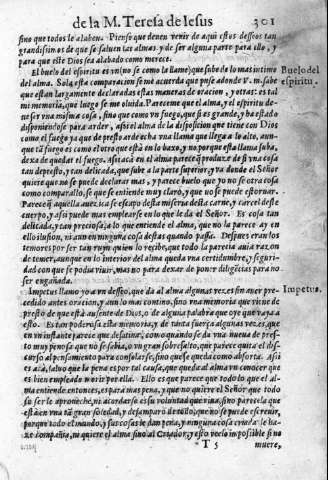 de la M. Teresa de Iesus 301
sino que todos le alaben. Pienso que deuen venir de aqui estos desseos tan
grandissimos de que se saluen las almas, y de ser alguna parte para ello, y
para que este Dios sea alabado como merece.
El buelo del espiritu es vn (no se como la llame) que sube de lo mas intimo
del alma. Sola esta comparacion se me acuerda que puse adonde V. m. sabe
que estan largamente declaradas estas maneras de oracion, y otras: es tal
mi memoria, que luego se me oluida. Pareceme que el alma, y el espiritu de-
ue ser vna misma cosa, sino que como vn fuego, que si es grande, y ha estado
disponiendose para arder, assi el alma de la disposicion que tiene con Dios
como el fuego ya que de presto arde echa vna llama que llega a lo alto, aun-
que tã fuego es como el otro que està en lo baxo, y no porque esta llama suba,
dexa de quedar el fuego. Assi acà en el alma parece q̃ produze de si vna cosa
tan depresto, y tan delicada, que sube a la parte superior, y va donde el Señor
quiere que no se puede declarar mas, y parece buelo que yo no se otra cosa
como compararlo, se que se entiende muy claro, y que no se puede estoruar.
Parece q̃ aquella auezica se escapo desta miseria desta carne, y carcel deste
cuerpo, y assi puede mas emplearse en lo que le da el Señor. Es cosa tan
delicada, y tan preciosa, a lo que entiende el alma, que no la parece ay en
ello ilusion, ni aun en ninguna cosa destas quando passa. Despues eran los
temores por ser tan ruyn quien lo recibe, que todo la parecia auia razon
de temer, aunque en lo interior del alma queda vna certidumbre, y seguri-
dad con que se podia viuir, mas no para dexar de poner diligēcias para no
ser engañada.
Impetus llamo yo a vn desseo, que da al alma algunas vezes, sin auer pre-
cedido antes oracion, y aun lo mas contino, sino vna memoria que viene de
presto de que està ausente de Dios, o de alguna palabra que oye que vaya a
esto. Es tan poderosa esta memoria, y de tanta fuerça algunas vezes, que
en vn instante parece que desatina, como quando se da vna nueua de pres-
to muy penosa que no se sabia, o vn gran sobresalto, que parece quita el dis-
curso al pensamiento para consolarse, sino que se queda como absorta. Assi
es acà, saluo que la pena es por tal causa, que queda al alma vn conocer que
es bien empleado morir por ella. Ello es que parece que todo lo que el al-
ma entiende entonces, es para mas pena, y que no quiere el Señor que todo
su ser le aproueche, ni acordarse es su voluntad que viua, sino parecela que
està en vna tã gran soledad, y desamparo de todo, que no se puede escreuir,
porque todo el mundo, y sus cosas le dan pena, y ninguna cosa criada le ha-
ze compañia, ni quiere el alma sino al Criador, y esto veelo impossible si no
T 5 muere,
Buelo del
espiritu.
Impetus.